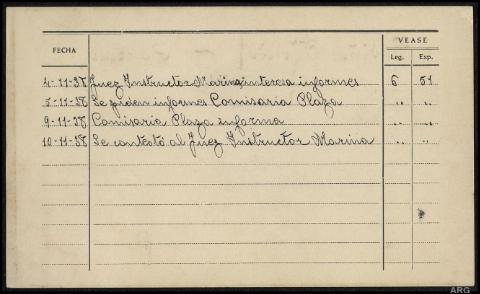 VEASE
FECHA
Leg. Exp.
4-11-38 Juez Instructor Marina, interesa informes 6 51
5-11-38 Se piden informes Comisaria Plaza " "
9-11-38 Comisaria Plaza informa " "
10-11-38 Se contestó al Juez Instructor Marina " "
ARG